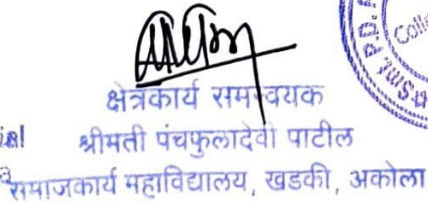 क्षेत्रकार्य समन्वयक
श्रीमती पंचफुलादेवी पाटील
समाजकार्य महाविद्यालय, खडकी, अकोला
Smt. P.D.